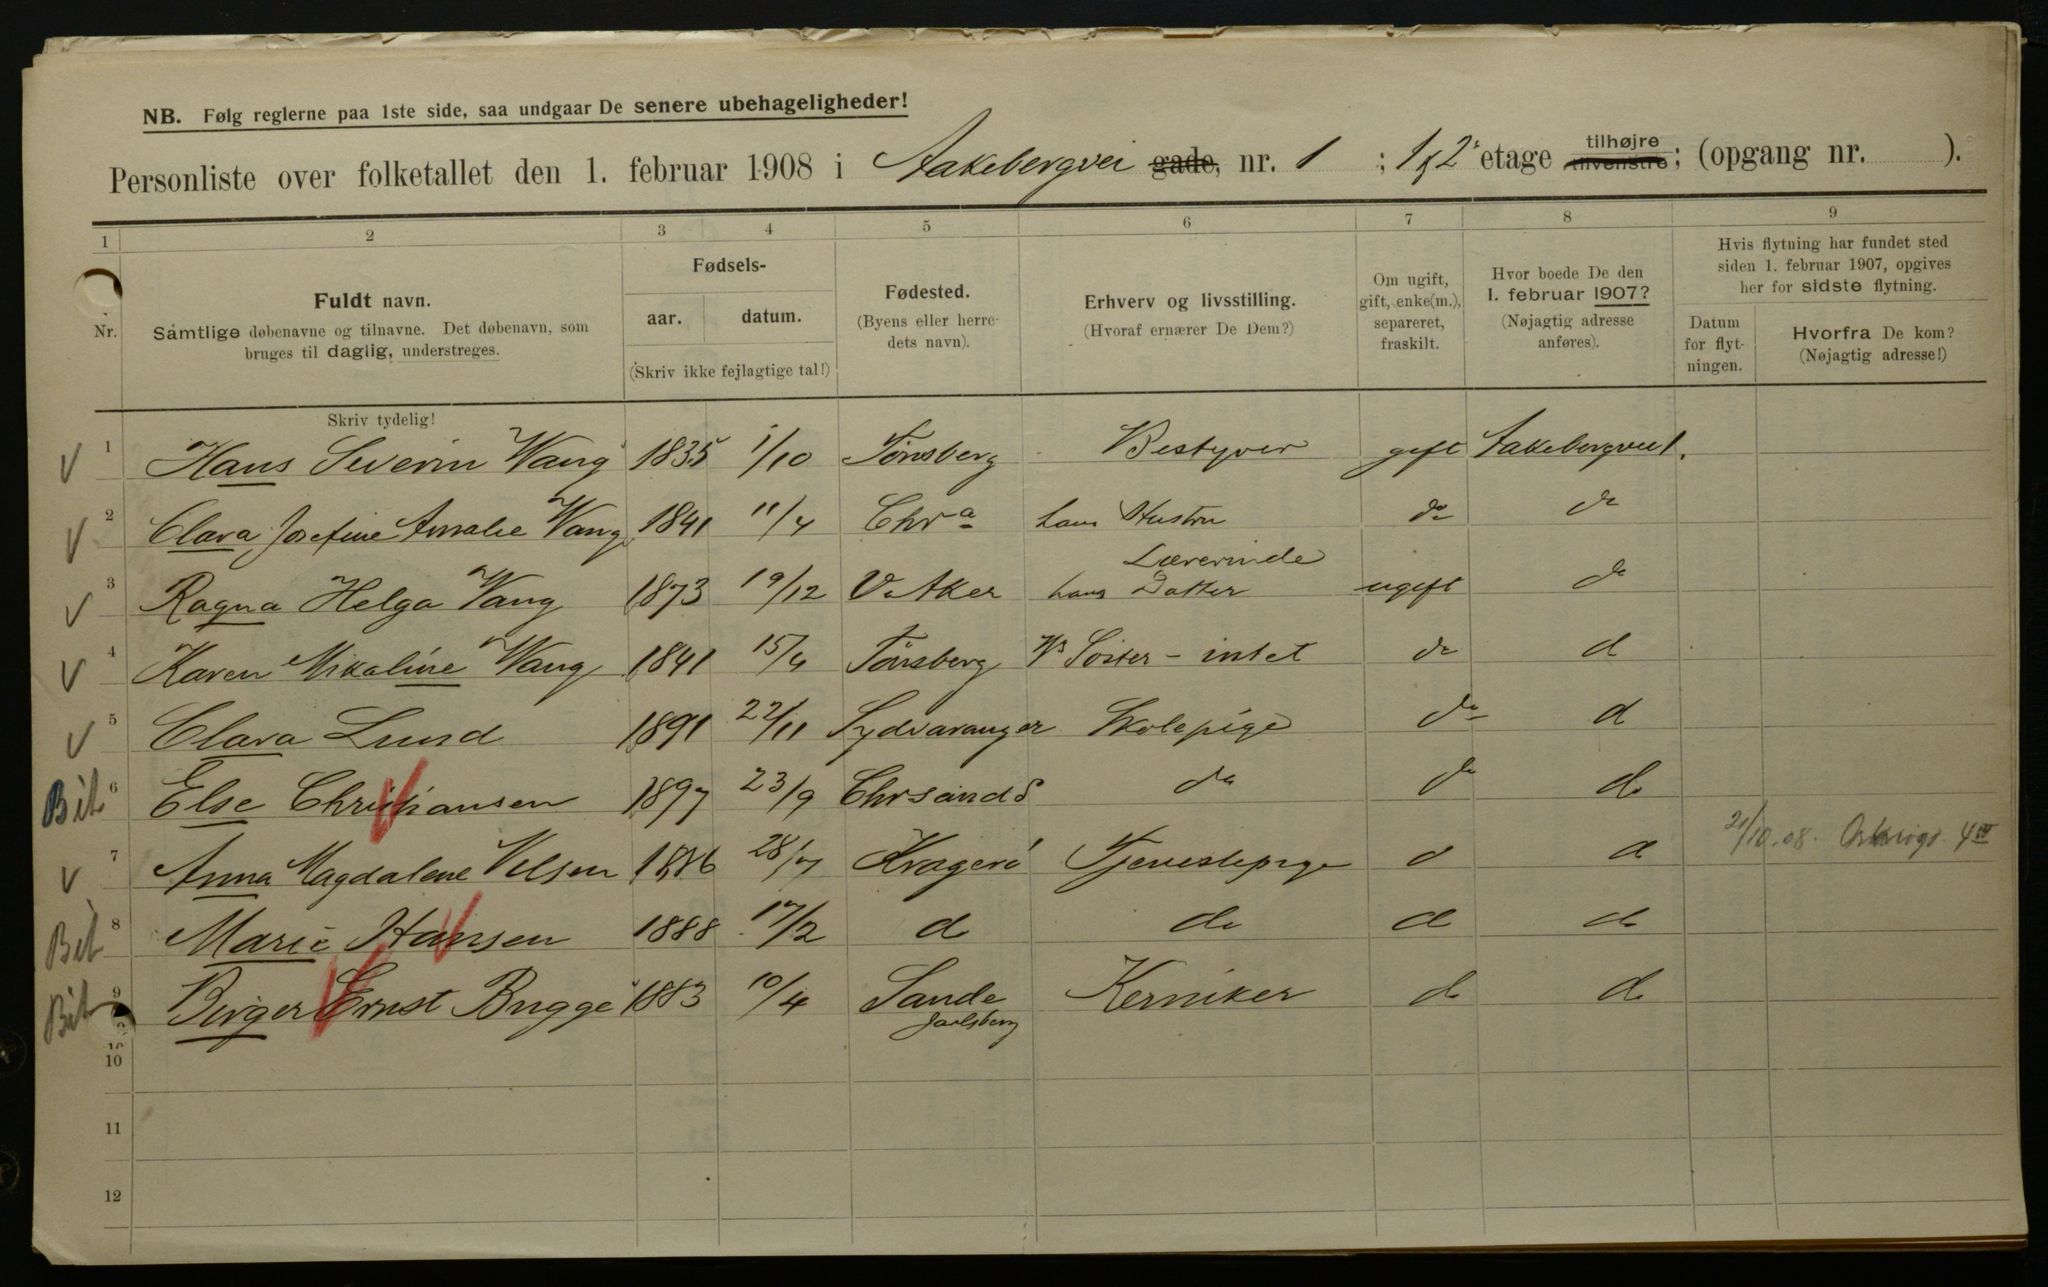 NB. Følg reglerne paa 1ste side, saa undgaar De senere ubehageligheder!
Personliste over folketallet den 1. februar 1908 i Aakebergvei gade, nr. 1 ; 1 & 2' etage tilhøjre tilvenstre; (opgang nr. ).
1 2 3 4 5 6 7 8 9
Nr.
Fuldt navn.
Samtlige døbenavne og tilnavne. Det døbenavn, som
bruges til daglig, understreges.
Fødsels-
aar. datum.
(Skriv ikke fejlagtige tal!)
Fødested.
(Byens eller herre-
dets navn).
Erhverv og livsstilling.
(Hvoraf ernærer De Dem?)
Om ugift,
gift, enke(m.),
separeret,
fraskilt.
Hvor boede De den
1. februar 1907?
(Nøjagtig adresse
anføres).
Hvis flytning har fundet sted
siden 1. februar 1907, opgives
her for sidste flytning.
Datum
for flyt-
ningen.
Hvorfra De kom?
(Nøjagtig adresse!)
Skriv tydelig!
1 Hans Severin Wang 1835 1/10 Tønsberg Bestyrer gift Aakebergvei 1.
2 Clara Josefine Amalie Wang 1841 11/4 Chra hans Hustru do do
Lærerinde
3 Ragna Helga Wang 1873 19/12 V. Aker hans Datter ugift do
4 Karen Mikaline Wang 1841 15/4 Tönsberg Hs Söster - intet do d
5 Clara Lund 1891 22/11 Sydvaranger Skolepige do d
Bil 6 Else Christiansen 1897 23/9 Chrsands do do do
7 Anna Magdalene Nilsen 1886 28/7 Kragerö Tjenestepige d d 21/10.08. 4 III
Bil 8 Marie Hansen 1888 17/2 d do d do
Bil 9 Birger Ernst Bugge 1883 10/4 Sande Kemiker do do
Jarlsberg
10
10
11
12